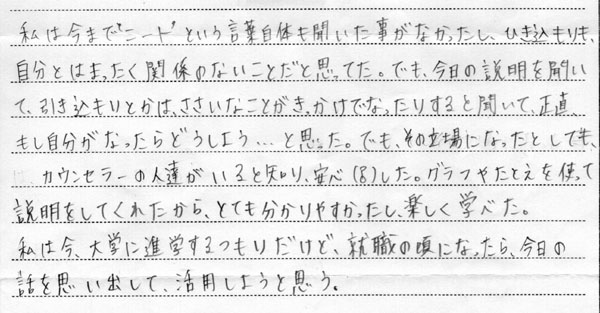 私は今まで"ニート"という言葉自体も聞いた事がなかったし、ひき込もりも、
自分とはまったく関係のないことだと思ってた。でも、今日の説明を聞い
て、引き込もりとかは、ささいなことがきっかけでなったりすると聞いて、正直
もし自分がなったらどうしよう…と思った。でも、その立場になったとしても、
カウンセラーの人達がいると知り、安心(8)した。グラフやたとえを使って
説明をしてくれたから、とても分かりやすかったし、楽しく学べた。
私は今、大学に進学するつもりだけど、就職の頃になったら、今日の
話を思い出して、活用しようと思う。